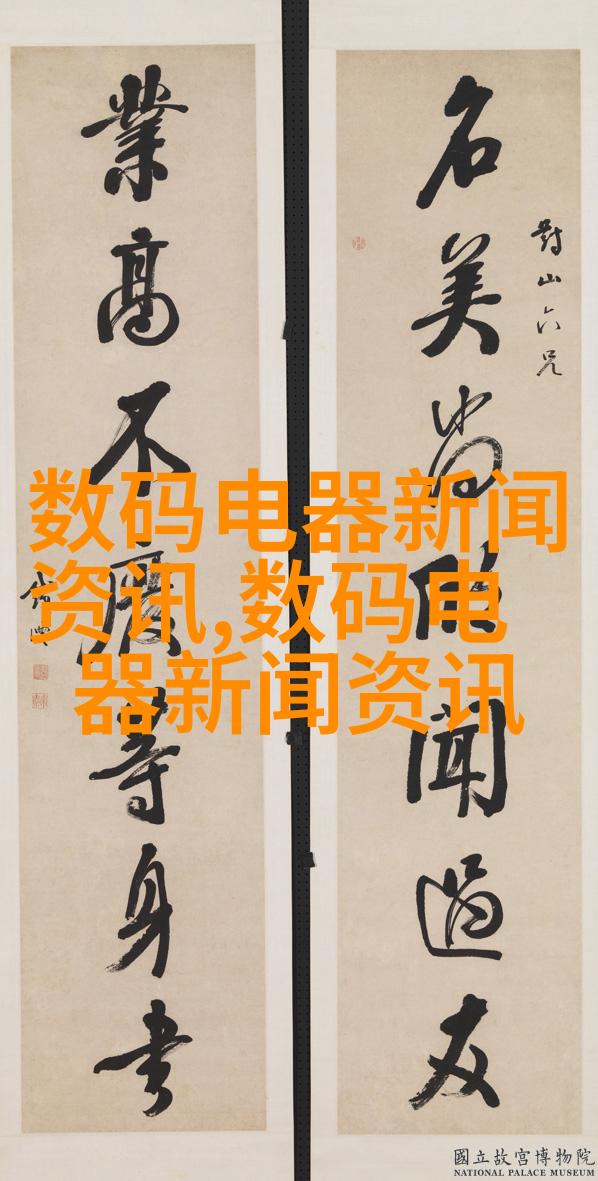 對山六兄
名美尚欣聞過友
業高不廢等身書
数码电器新闻
资讯,数码电
器新闻资讯
國立故宮博物院
NATIONAL PALACE MUSEUM